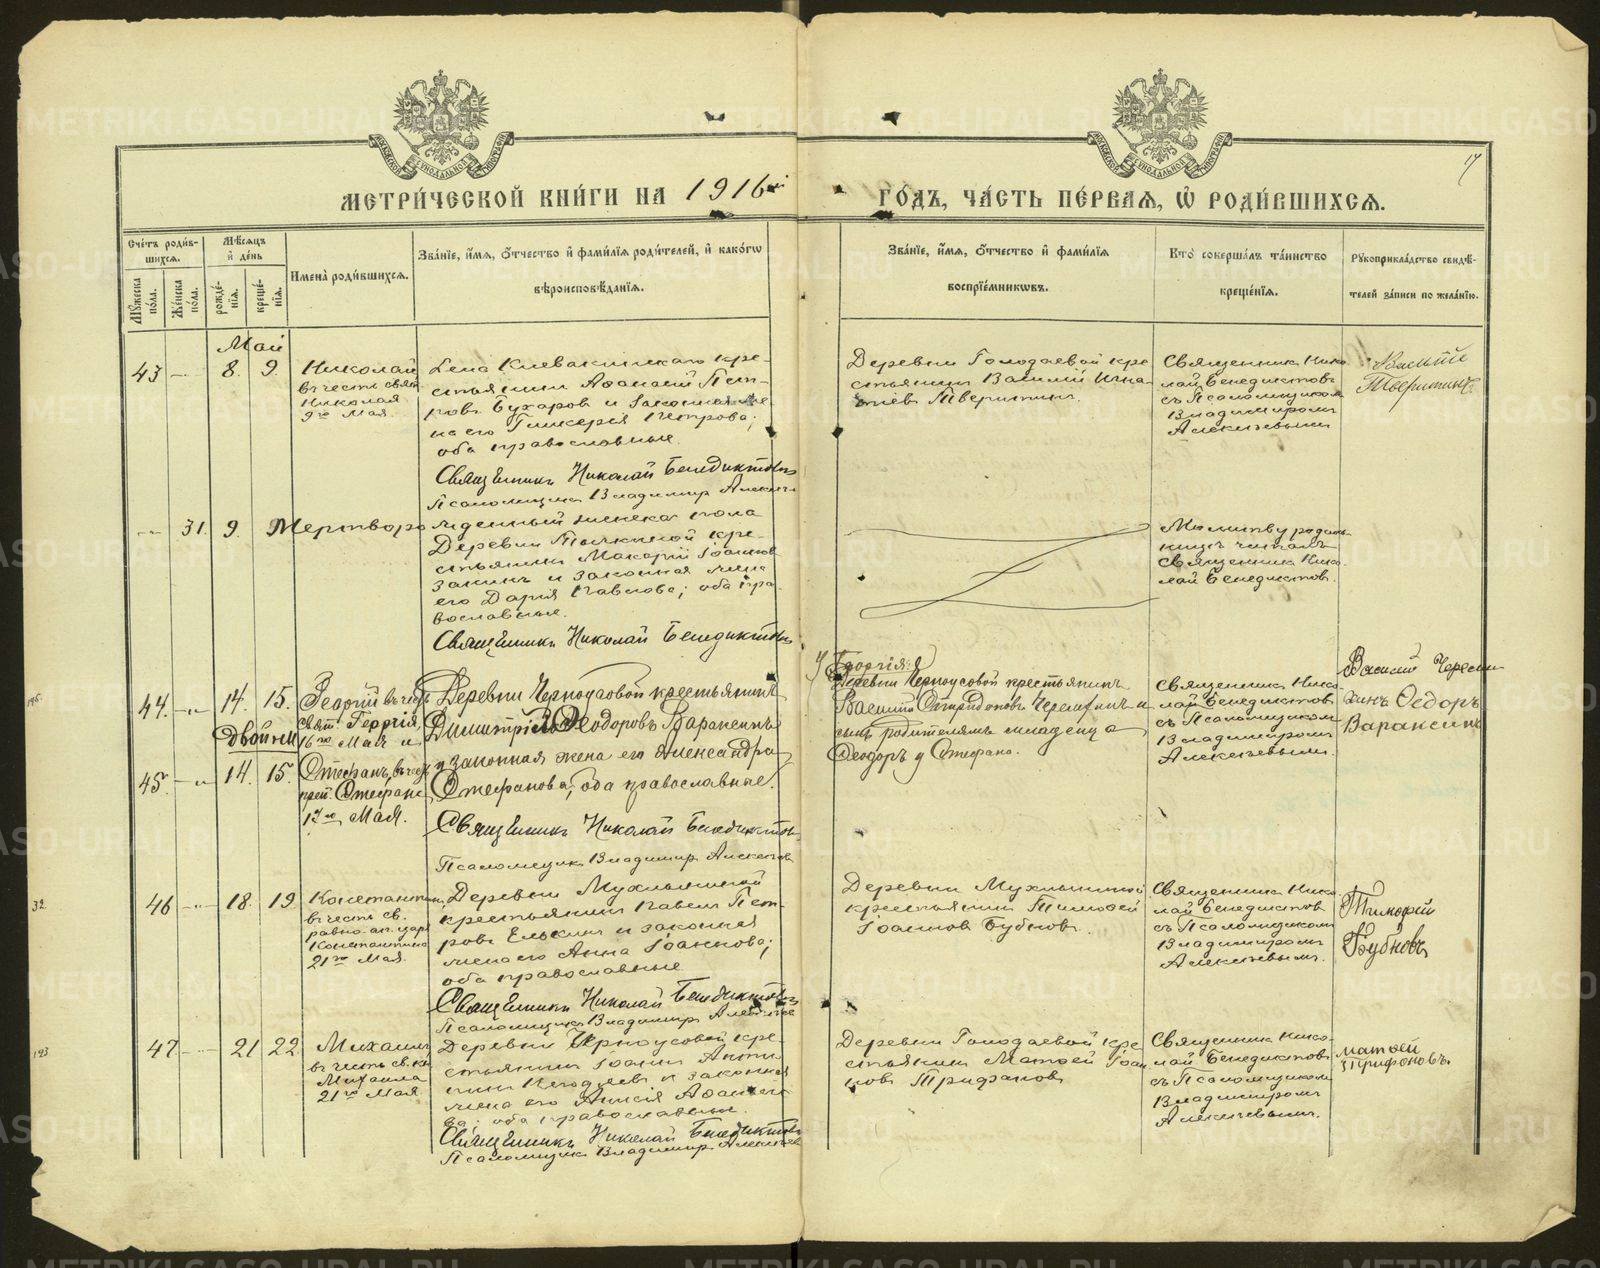 МЕТРИ́ЧЕСКОЙ КНИ́ГИ НА 1916й ГО́ДЪ, ЧА́СТЬ ПЕ́РВАЯ, Ѽ РОДИ́ВШИХСЯ.
17
Сче́тъ роди́в-
шихся.
Мꙋ́жеска по́ла.
Же́нска по́ла.
Мѣ́сяцъ
и҆ де́нь
рожде́-
нїя.
креще́-
нїя.
И҆мена̀ роди́вшихся.
Зва́нїе, и҆́мя, ѻ҆́тчество и҆ фами́лїя роди́телей, и҆ како́гѡ
вѣроисповѣ́данїя.
Зва́нїе, и҆́мя, ѻ҆́тчество и҆ фами́лїя
воспрїе́мникѡвъ.
Кто̀ соверша́лъ та́инство
креще́нїя.
Рꙋкоприкла́дство свидѣ́-
телей за́писи по жела́нїю.
Май
43 — 8. 9.
Николай
въ честь свят.
Николая
9го Мая.
Села Клевакинскаго кре-
стьянинъ Афанасій Пет-
ровъ Бухаровъ и законная же-
на его Гликерія Петрова;
оба православные.
Священникъ Николай Бенедиктовъ
Псаломщикъ Владимиръ Алексѣев
Деревни Голодаевой кре
стьянинъ Василій Игна
тіевъ Тверитинъ.
Священникъ Нико
лай Бенедиктовъ
съ Псаломщикомъ
Владимиромъ
Алексѣевымъ
Василій
Тверитинъ
31. 9.
Мертворожденный женска пола
Деревни кре-
стьянинъ Макарій Іоаннов
и законная жена
его Дарія Павлова; оба пра
вославные.
Священникъ Николай Бенедиктовъ
Молитву родиль
ницѣ читалъ
Священникъ Нико
лай Бенедиктов.
196.
44. — 14. 15.
Георгій въ честь
свят. Георгія,
16го Мая и
Двойни
45 — 14. 15.
Стефанъ, въ чес
преп. Стефана
17го Мая.
Деревни Черноусовой крестьянинъ
Димитрій Ѳеодоровъ Вараксинъ
и законная жена его Александра
Стефанова, оба православные.
Священникъ Николай Бенедиктов
Псаломщик Владимир Алексѣев
у Георгія:
Деревни Черноусовой крестьянинъ
Василій Спиридоновъ Черемхинъ и
сынъ родителямъ младенца
Ѳеодоръ у Стефана.
Священникъ Нико-
лай Бенедиктовъ
съ Псаломщикомъ
Владимиромъ
Алексѣевымъ.
Василій
Ѳедоръ
Вараксинъ
32.
46 — 18. 19
Константинъ,
въ честь св.
равно-ап. царя
Константина
21го Мая.
Деревни Мухлыниной
крестьянинъ Павелъ Пет-
ровъ Елькинъ и законная
жена его Анна Іоаннова;
оба православные
Священникъ Николай Бенедиктовъ
Псаломщикъ Владимиръ Алексѣев
Деревни Мухлыниной
крестьянинъ Тимоѳей
Іоанновъ Бубновъ.
Священникъ Нико-
лай Бенедиктовъ
съ Псаломщикомъ
Владимиромъ
Алексѣевымъ.
Тимофей
Бубновъ
193
47 — 21 22
Михаилъ
въ честь св. кн.
Михаила
21го Мая.
Деревни Черноусовой кре-
стьянинъ Іоаннъ Анти-
пинъ и законная
жена его Анисія Афанасье
ва; оба православные.
Священникъ Николай Бенедиктовъ
Псаломщикъ Владимиръ Алексѣев
Деревни Голодаевой кре
стьянинъ Матѳей Іоан
новъ Трифановъ
Священникъ Нико-
лай Бенедиктовъ
съ Псаломщикомъ
Владимиромъ
Алексѣевымъ.
матѳей
Трифоновъ.
METRIKI.GASO-URAL.RU